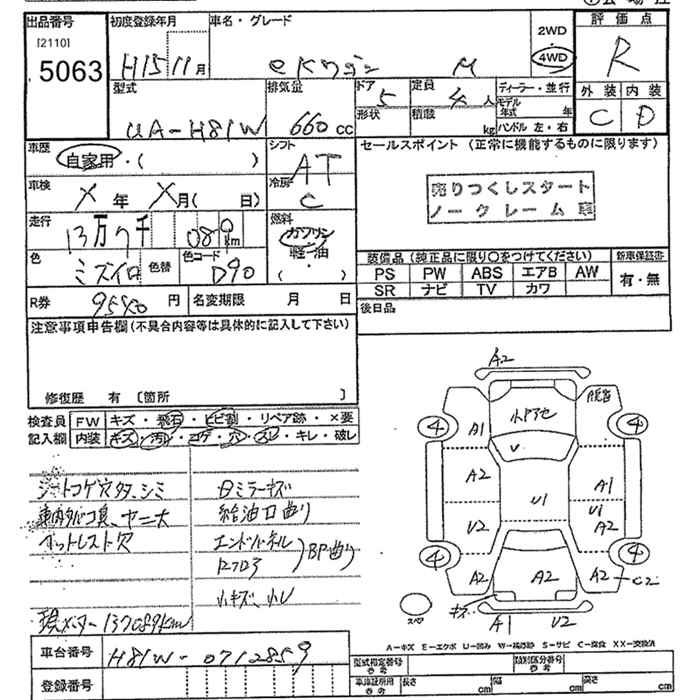 出品番号
[2110]
5063
初度登録年月
H15 11 月
車名・グレード
eKワゴン M
2WD
4WD
評価点
R
型式
UA-H81W
排気量
660 cc
ドア
5
形状
定員
4 人
積載
kg
ディーラー・並行
モデル年式 年
ハンドル 左・右
外装 内装
C D
車歴
自家用・( )
シフト
AT
セールスポイント (正常に機能するものに限ります)
売りつくしスタート
ノークレーム車
車検
X 年 X 月( 日)
冷房
C
走行
13万7千 080 km
燃料
ガソリン
軽油
・( )
色
ミズイロ
色替
色コード
D90
装備品 (純正品に限り○をつけてください)
新車保証書
PS PW ABS エアB AW
有・無
SR ナビ TV カワ
R券
9540 円
名変期限 月 日
後日品
注意事項申告欄(不具合内容等は具体的に記入して下さい)
修復歴 有 〔箇所 〕
検査員
記入欄
FW キズ・飛石・ヒビ割・リペア跡・×要
内装 キズ・汚レ・コゲ・穴・スレ・キレ・破レ
シートコゲ穴
車内タバコ臭、ヤニ大
ミラーキズ
給油口曲り
エンドパネル
BP曲り
小キズ、小凹
現メーター 137089km
A2
4 A1 4
A2 U1 A1
U1
U2 A2
4 4
A2 A2 A2 C2
キズ
A1 U2
A-キズ E-エクボ U-凹み W-補修跡 S-サビ C-腐食 XX-交換済
車台番号
H81W-0712859
登録番号
型式指定番号
参考
類別区分番号
参考
車庫証明用
参考
長さ cm 幅 cm 高さ cm